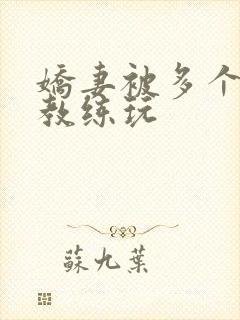 嬌妻被多个
教练玩
蘇九葉